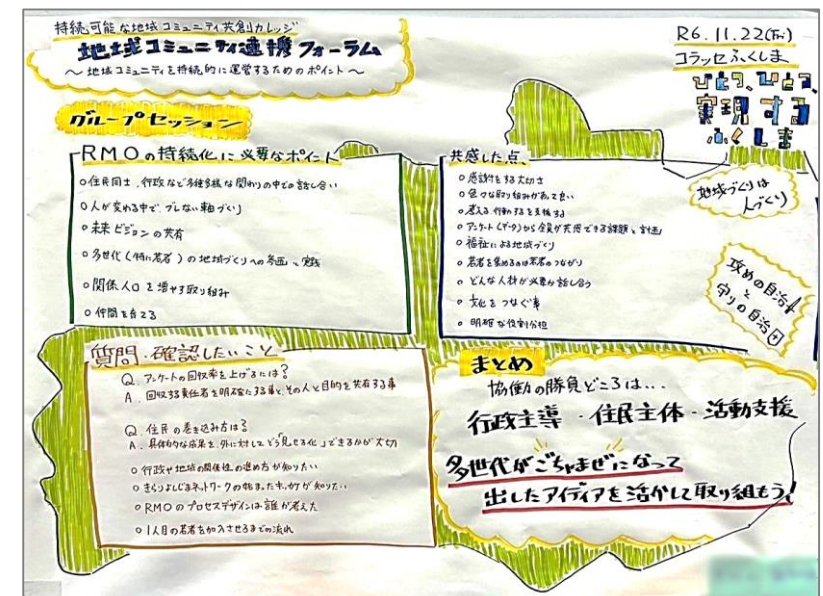 持続可能な地域コミュニティ共創カレッジ
地域コミュニティ連携フォーラム
～地域コミュニティを持続的に運営するためのポイント～
R6.11.22(金)
コラッセふくしま
ひとつ、ひとつ、
実現する
ふくしま
グループセッション
RMOの持続化に必要なポイント
○住民同士、行政など多種多様な関わりの中での話し合い
○人が変わる中で、ブレない軸づくり
○未来ビジョンの共有
○多世代(特に若者)の地域づくりへの参画、実践
○関係人口を増やす取り組み
○仲間を育てる
共感した点、
○感謝をする大切さ
○色々な取り組みがあって良い
○考える、行動するを支援する
○アンケート(データ)から全員が共感できる課題、計画
○福祉による地域づくり
○若者を集めるのは若者のつながり
○どんな人材が必要か話し合う
○文化をつなぐ事
○明確な役割分担
地域づくりは
人づくり
攻めの自治
と
守りの自治
質問、確認したいこと
Q. アンケートの回収率を上げるには?
A. 回収する責任者を明確にする事と、その人と目的を共有する事
Q. 住民の巻き込み方は?
A. 具体的な成果を、外に対してどう「見せる化」できるかが大切
○行政や地域の関係性の進め方が知りたい
○きらりよしじまネットワークの始まったキッカケが知りたい
○RMOのプロセスデザインは誰が考えた
○1人目の若者を加入させるまでの流れ
まとめ
協働の勝負どころは...
行政主導・住民主体・活動支援
多世代がごちゃまぜになって
出したアイディアを活かして取り組もう!